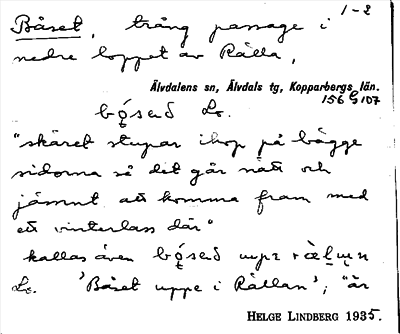 1-2
Båset, trång passage i
nedre loppet av Rålla,
Älvdalens sn, Älvdals tg, Kopparbergs län.
156 G 107
Lr.
"skäret stupar ihop på bägge
sidorna så det går nätt och
jämnt att komma fram med
ett vinterlass där"
kallas även
Lr. 'Båset uppe i Rållan'; "är
HELGE LINDBERG 1935.